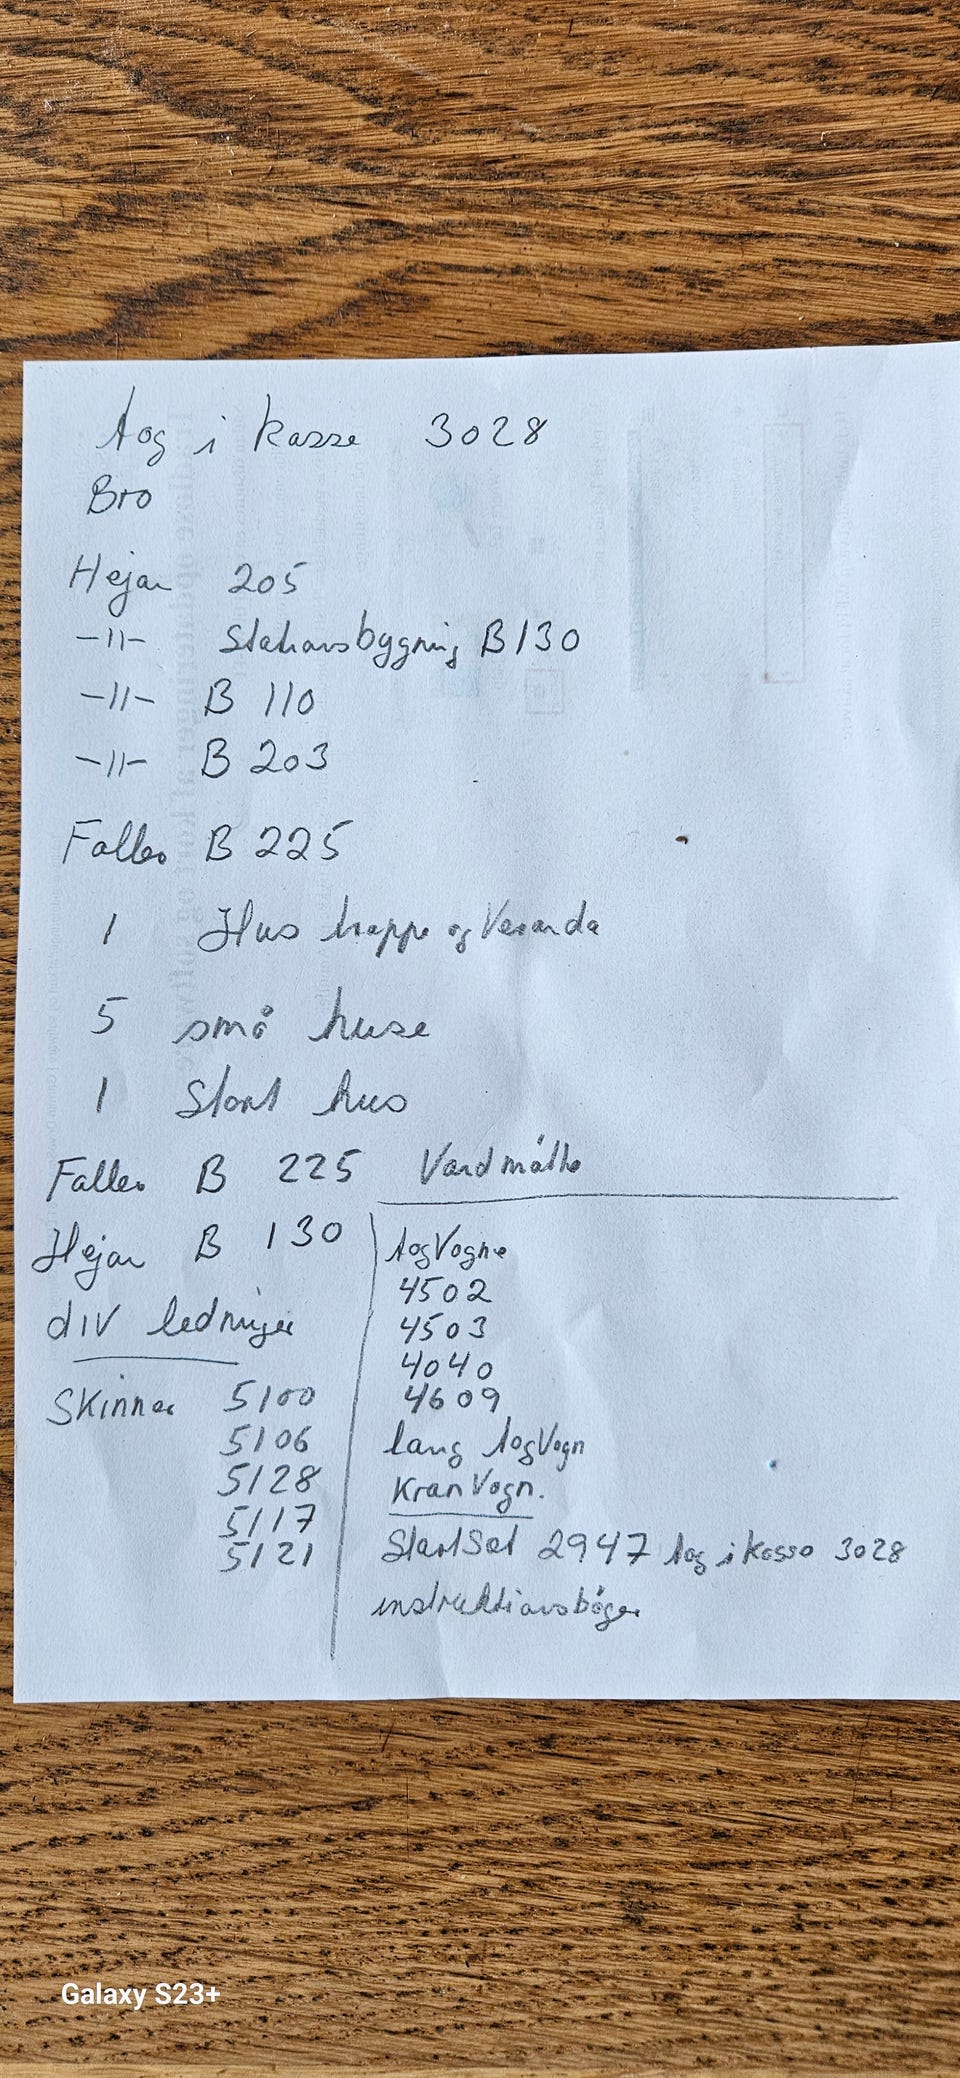 tog i kasse 3028
Bro
Hejan 205
-11- Stationsbygning B130
-11- B 110
-11- B 203
Faller B 225
1 Hus trappe og Veranda
5 små huse
1 Stort hus
Faller B 225 Vandmølle
Hejan B 130
div ledninger
Skinner 5100
5106
5128
5117
5121
togVogne
4502
4503
4040
4609
lang togVogn
KranVogn.
StartSæt 2947 tog i kasse 3028
instruktionsbøger
Galaxy S23+